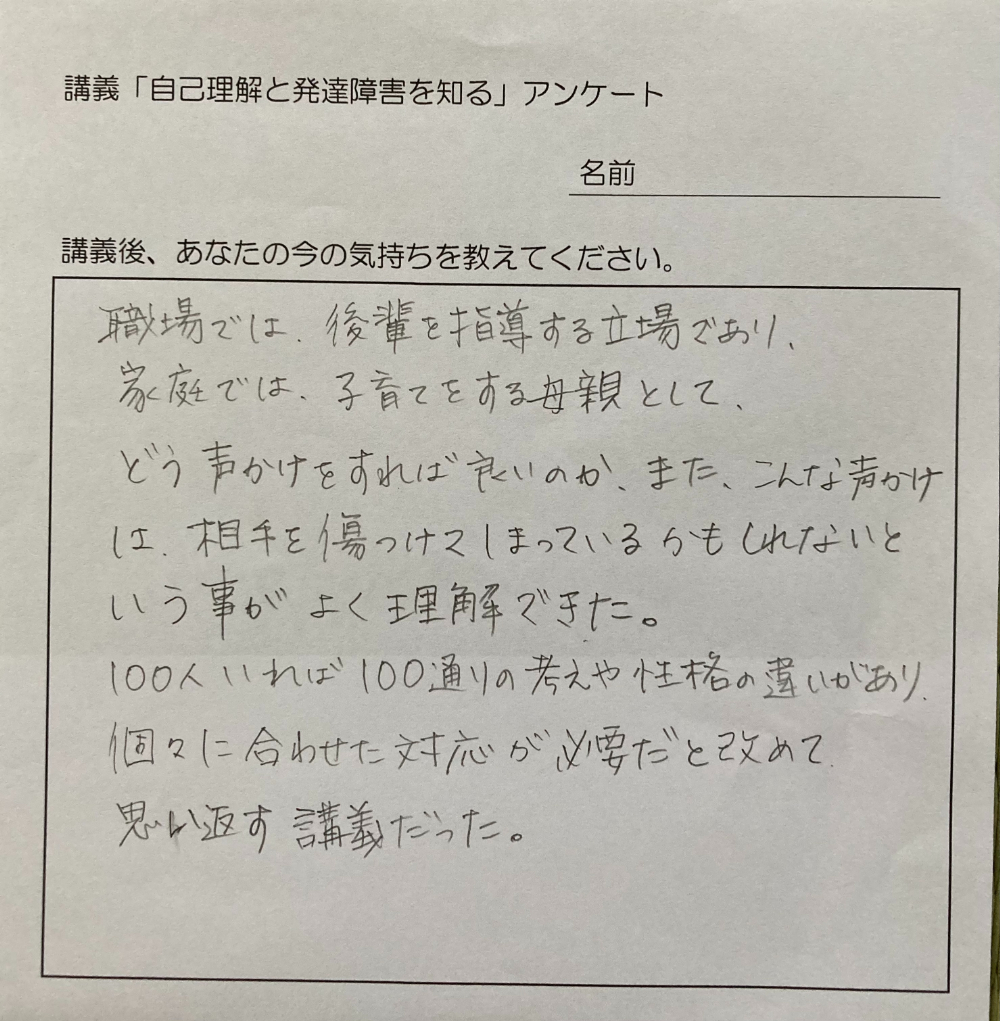 講義「自己理解と発達障害を知る」アンケート
名前
講義後、あなたの今の気持ちを教えてください。
職場では、後輩を指導する立場であり、
家庭では、子育てをする母親として、
どう声かけをすれば良いのか、また、こんな声かけ
は、相手を傷つけてしまっているかもしれないと
いう事がよく理解できた。
100人いれば100通りの考えや性格の違いがあり、
個々に合わせた対応が必要だと改めて
思い返す講義だった。